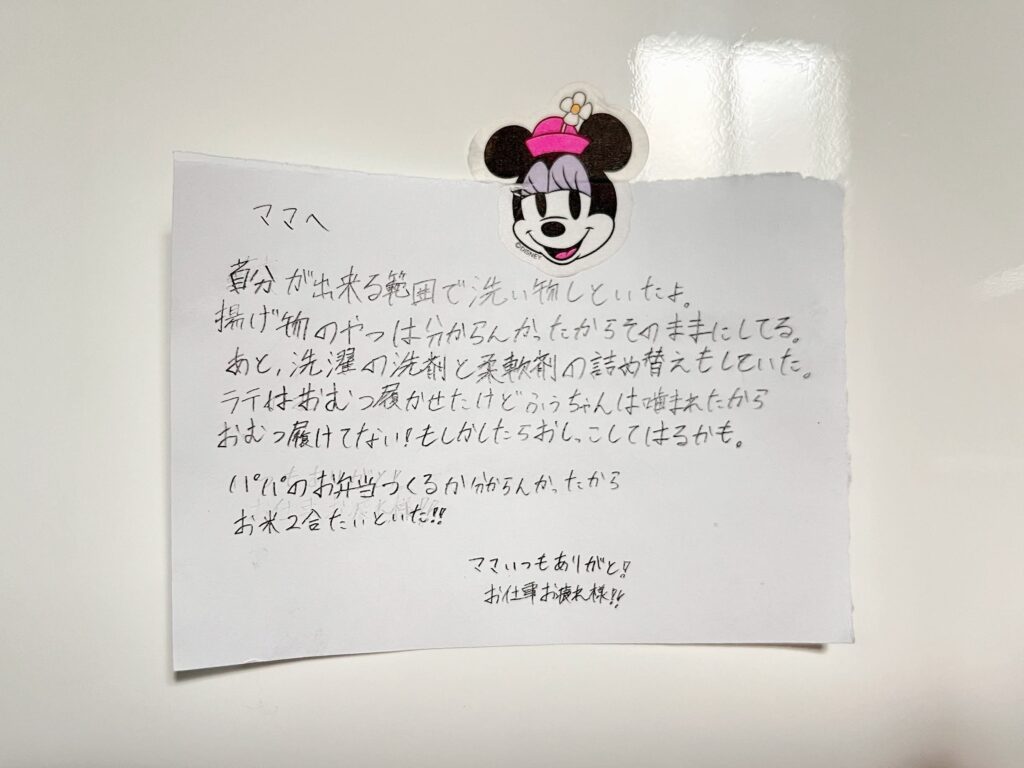 ©DISNEY
ママへ
自分が出来る範囲で洗い物しといたよ。
揚げ物のやつは分からんかったからそのままにしてる。
あと、洗濯の洗剤と柔軟剤の詰め替えもしていた。
ラテはおむつ履かせたけどふぅちゃんは噛まれたから
おむつ履けてない!もしかしたらおしっこしてはるかも。
パパのお弁当つくるか分からんかったから
お米2合たいといた!!
ママいつもありがと!
お仕事お疲れ様!!